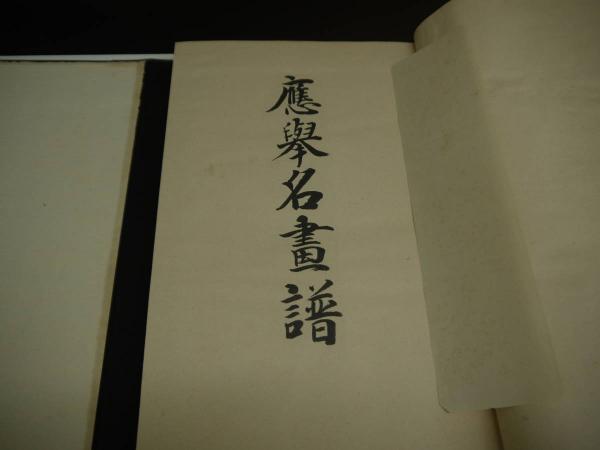 應舉名畫譜